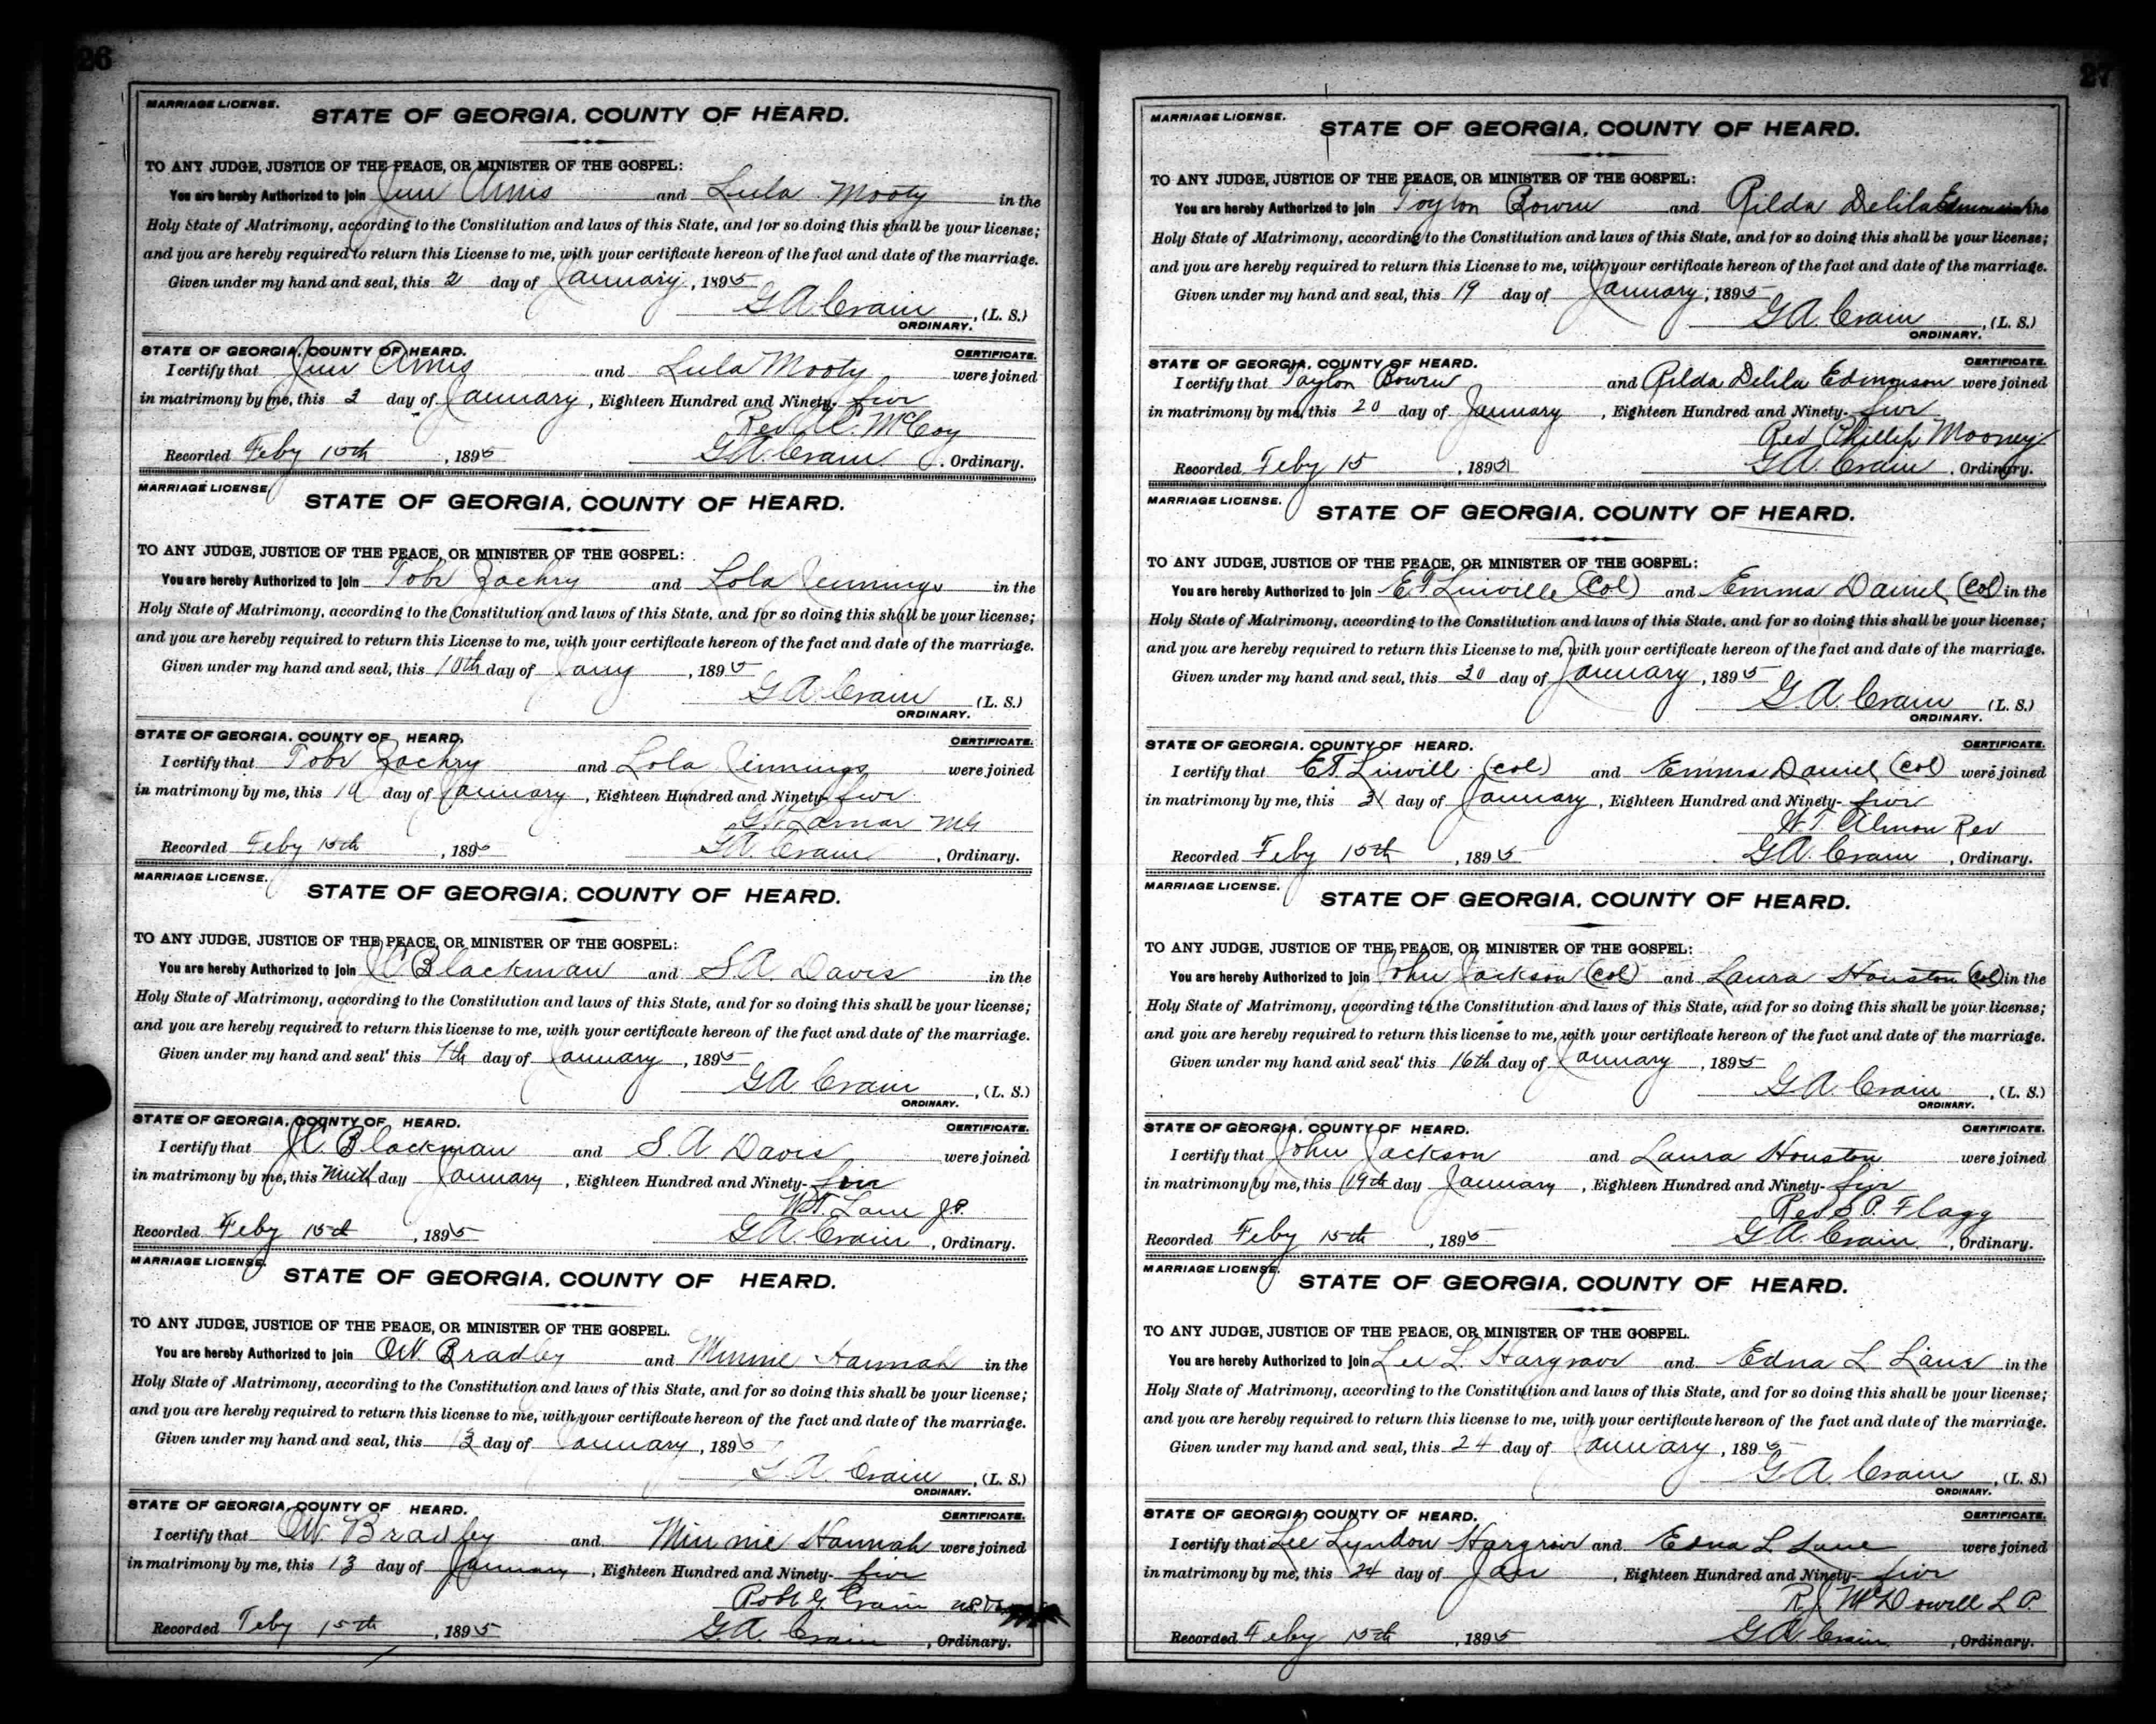 26
MARRIAGE LICENSE.
STATE OF GEORGIA, COUNTY OF HEARD.
TO ANY JUDGE, JUSTICE OF THE PEACE, OR MINISTER OF THE GOSPEL:
You are hereby Authorized to join Jim Amis and Lula Mooty in the
Holy State of Matrimony, according to the Constitution and laws of this State, and for so doing this shall be your license;
and you are hereby required to return this License to me, with your certificate hereon of the fact and date of the marriage.
Given under my hand and seal, this 2 day of January, 1895
G A. Crain, (L. S.)
ORDINARY.
STATE OF GEORGIA, COUNTY OF HEARD. CERTIFICATE.
I certify that Jim Amis and Lula Mooty were joined
in matrimony by me, this 2 day of January, Eighteen Hundred and Ninety-five
Rev McCoy
Recorded Feby 15th, 1895 G.A. Crain. Ordinary.
MARRIAGE LICENSE.
STATE OF GEORGIA, COUNTY OF HEARD.
TO ANY JUDGE, JUSTICE OF THE PEACE, OR MINISTER OF THE GOSPEL:
You are hereby Authorized to join Tobe Zachry and Lola Jennings in the
Holy State of Matrimony, according to the Constitution and laws of this State, and for so doing this shall be your license;
and you are hereby required to return this License to me, with your certificate hereon of the fact and date of the marriage.
Given under my hand and seal, this 10th day of Jany, 1895
G A. Crain (L. S.)
ORDINARY.
STATE OF GEORGIA, COUNTY OF HEARD. CERTIFICATE.
I certify that Tobe Zachry and Lola Jennings were joined
in matrimony by me, this day of January, Eighteen Hundred and Ninety-five
Lamar MG
Recorded Feby 15th, 1895 G.A. Crain, Ordinary.
MARRIAGE LICENSE.
STATE OF GEORGIA, COUNTY OF HEARD.
TO ANY JUDGE, JUSTICE OF THE PEACE, OR MINISTER OF THE GOSPEL:
You are hereby Authorized to join J C Blackman and S A Davis in the
Holy State of Matrimony, according to the Constitution and laws of this State, and for so doing this shall be your license;
and you are hereby required to return this license to me, with your certificate hereon of the fact and date of the marriage.
Given under my hand and seal' this 7th day of January, 1895
G A Crain, (L. S.)
ORDINARY.
STATE OF GEORGIA, COUNTY OF HEARD. CERTIFICATE.
I certify that J C. Blackman and S. A Davis were joined
in matrimony by me, this ninth day January, Eighteen Hundred and Ninety-five
Lane J.P.
Recorded Feby 15th, 1895 G A. Crain, Ordinary.
MARRIAGE LICENSE.
STATE OF GEORGIA, COUNTY OF HEARD.
TO ANY JUDGE, JUSTICE OF THE PEACE, OR MINISTER OF THE GOSPEL.
You are hereby Authorized to join O W. Bradley and Minnie Hannah in the
Holy State of Matrimony, according to the Constitution and laws of this State, and for so doing this shall be your license;
and you are hereby required to return this license to me, with your certificate hereon of the fact and date of the marriage.
Given under my hand and seal, this 13 day of January, 1895
G A. Crain, (L. S.)
ORDINARY.
STATE OF GEORGIA, COUNTY OF HEARD. CERTIFICATE.
I certify that O W. Bradley and Minnie Hannah were joined
in matrimony by me, this 13 day of January, Eighteen Hundred and Ninety-five
Robt G. Crain
Recorded Feby 15th, 1895 G.A. Crain, Ordinary.
27
MARRIAGE LICENSE.
STATE OF GEORGIA, COUNTY OF HEARD.
TO ANY JUDGE, JUSTICE OF THE PEACE, OR MINISTER OF THE GOSPEL:
You are hereby Authorized to join Taylor Bowen and Rilda Delila Edmonson in the
Holy State of Matrimony, according to the Constitution and laws of this State, and for so doing this shall be your license;
and you are hereby required to return this License to me, with your certificate hereon of the fact and date of the marriage.
Given under my hand and seal, this 19 day of January, 1895
G A. Crain, (L. S.)
ORDINARY.
STATE OF GEORGIA, COUNTY OF HEARD. CERTIFICATE.
I certify that Taylor Bowen and Rilda Delila Edmonson were joined
in matrimony by me, this 20 day of January, Eighteen Hundred and Ninety-five
Rev Phillip Mooney
Recorded Feby 15, 1895 G A. Crain, Ordinary.
MARRIAGE LICENSE.
STATE OF GEORGIA, COUNTY OF HEARD.
TO ANY JUDGE, JUSTICE OF THE PEACE, OR MINISTER OF THE GOSPEL:
You are hereby Authorized to join E T Linville (Col) and Emma Daniel (Col) in the
Holy State of Matrimony, according to the Constitution and laws of this State, and for so doing this shall be your license;
and you are hereby required to return this License to me, with your certificate hereon of the fact and date of the marriage.
Given under my hand and seal, this 30 day of January, 1895
G. A. Crain (L. S.)
ORDINARY.
STATE OF GEORGIA, COUNTY OF HEARD. CERTIFICATE.
I certify that E T. Linvill (col) and Emma Daniel (Col) were joined
in matrimony by me, this 31 day of January, Eighteen Hundred and Ninety-five
Almon Rev
Recorded Feby 15th, 1895 G A. Crain, Ordinary.
MARRIAGE LICENSE.
STATE OF GEORGIA, COUNTY OF HEARD.
TO ANY JUDGE, JUSTICE OF THE PEACE, OR MINISTER OF THE GOSPEL:
You are hereby Authorized to join John Jackson (Col) and Laura Houston (Col) in the
Holy State of Matrimony, according to the Constitution and laws of this State, and for so doing this shall be your license;
and you are hereby required to return this license to me, with your certificate hereon of the fact and date of the marriage.
Given under my hand and seal' this 16th day of January, 1895
G A. Crain, (L. S.)
ORDINARY.
STATE OF GEORGIA, COUNTY OF HEARD. CERTIFICATE.
I certify that John Jackson and Laura Houston were joined
in matrimony by me, this 19th day January, Eighteen Hundred and Ninety-five
Rev. S P. Flagg
Recorded Feby 15th, 1895 G A. Crain, Ordinary.
MARRIAGE LICENSE.
STATE OF GEORGIA, COUNTY OF HEARD.
TO ANY JUDGE, JUSTICE OF THE PEACE, OR MINISTER OF THE GOSPEL.
You are hereby Authorized to join Lee L. Hargrove and Edna L Lane in the
Holy State of Matrimony, according to the Constitution and laws of this State, and for so doing this shall be your license;
and you are hereby required to return this license to me, with your certificate hereon of the fact and date of the marriage.
Given under my hand and seal, this 24 day of January, 1895
G A. Crain, (L. S.)
ORDINARY.
STATE OF GEORGIA, COUNTY OF HEARD. CERTIFICATE.
I certify that Lee Lyndon Hargrove and Edna L Lane were joined
in matrimony by me, this 24 day of Jan, Eighteen Hundred and Ninety-five
R. J McDowell L P.
Recorded Feby 15th, 1895 G A. Crain, Ordinary.